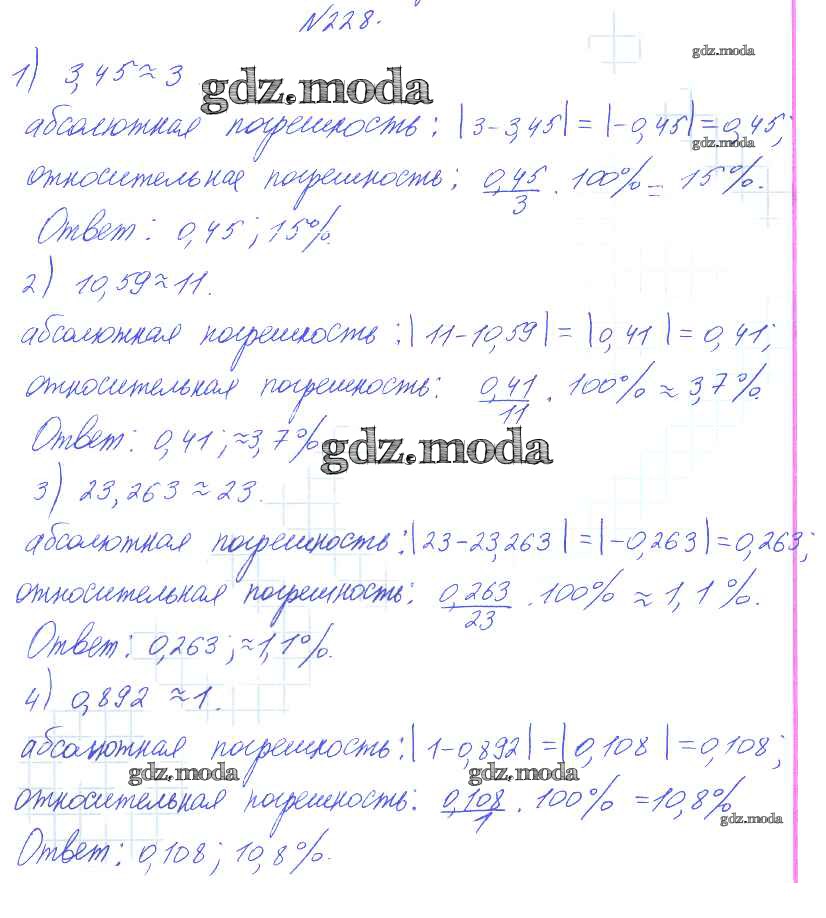 №228.
gdz.moda
1) 3,45≈3
gdz.moda
абсолютная погрешность: |3-3,45|=|-0,45|=0,45;
gdz.moda
относительная погрешность: 0,45/3 · 100% = 15%.
Ответ: 0,45; 15%.
2) 10,59≈11.
абсолютная погрешность: |11-10,59|=|0,41|=0,41;
относительная погрешность: 0,41/11 · 100% ≈ 3,7%.
Ответ: 0,41; ≈3,7%
gdz.moda
3) 23,263≈23.
абсолютная погрешность: |23-23,263|=|-0,263|=0,263;
относительная погрешность: 0,263/23 · 100% ≈ 1,1%.
Ответ: 0,263; ≈1,1%.
4) 0,892≈1.
абсолютная погрешность: |1-0,892|=|0,108|=0,108;
gdz.moda gdz.moda
относительная погрешность: 0,108/1 · 100% =10,8%
gdz.moda
Ответ: 0,108; 10,8%.